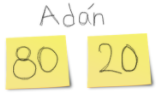 Adán
80 20